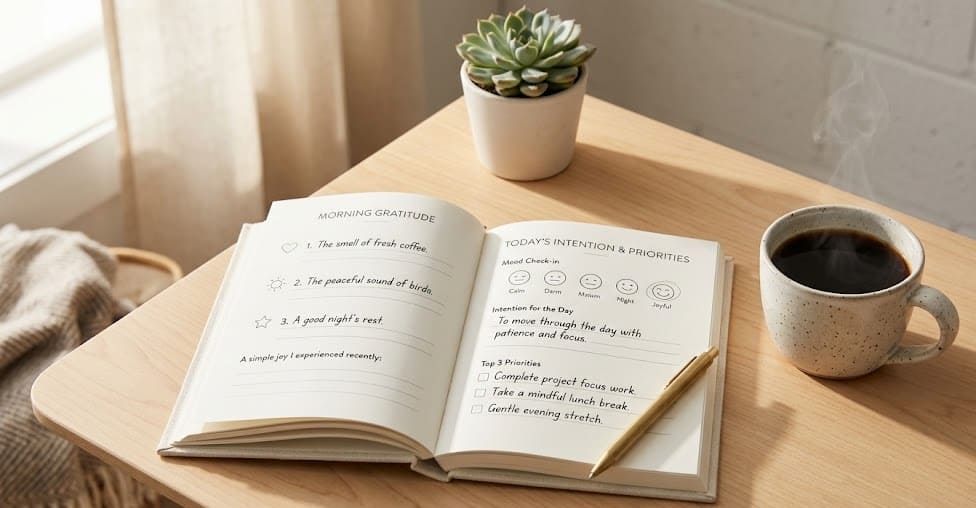 MORNING GRATITUDE
1. The smell of fresh coffee.
2. The peaceful sound of birds.
3. A good night's rest.
A simple joy I experienced recently:
TODAY'S INTENTION & PRIORITIES
Mood Check-in
Calm
Night Joyful
Intention for the Day
To move through the day with
patience and focus.
Top 3 Priorities
Complete project focus work.
Take a mindful lunch break.
Gentle evening stretch.